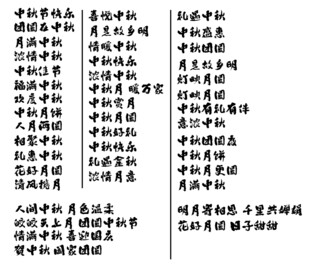 中秋节快乐
团圆在中秋
月满中秋
浓情中秋
中秋佳节
福满中秋
欢度中秋
中秋月饼
人月两圆
相聚中秋
礼惠中秋
花好月圆
清风揽月
喜悦中秋
月是故乡明
情暖中秋
中秋快乐
浓情中秋
中秋月 暖万家
中秋赏月
中秋月圆
中秋好礼
中秋快乐
礼遇金秋
浓情月意
礼遇中秋
中秋盛惠
中秋团圆
月是故乡明
灯映月圆
灯映月圆
中秋有礼有伴
意浓中秋
中秋团圆
中秋月饼
中秋月更圆
月满中秋
人间中秋 月色温柔
皎皎天上月 团圆中秋节
情满中秋 喜迎国庆
贺中秋 阖家团圆
明月寄相思 千里共婵娟
花好月圆 日子甜甜